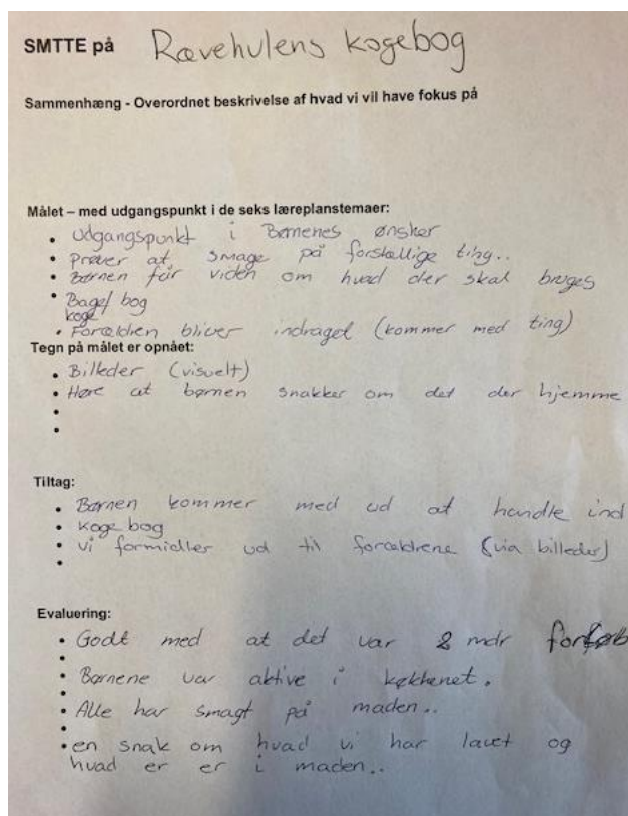 SMTTE på Rævehulens kogebog
Sammenhæng - Overordnet beskrivelse af hvad vi vil have fokus på
Målet – med udgangspunkt i de seks læreplanstemaer:
• Udgangspunkt i Børnenes ønsker
• Prøver at smage på forskællige ting..
• Børnen får viden om hvad der skal bruges
• Bage/ bog
koge
• Forældren bliver indraget (kommer med ting)
Tegn på målet er opnået:
• Billeder (visuelt)
• Høre at børnen snakker om det der hjemme
•
•
Tiltag:
• Børnen kommer med ud at handle ind
• Koge bog
• vi formidler ud til forældrene (via billeder)
•
Evaluering:
• Godt med at det var 2 mdr forløb
•
• Børnene var aktive i køkkenet.
•
• Alle har smagt på maden..
•
• en snak om hvad vi har lavet og
hvad er er i maden..